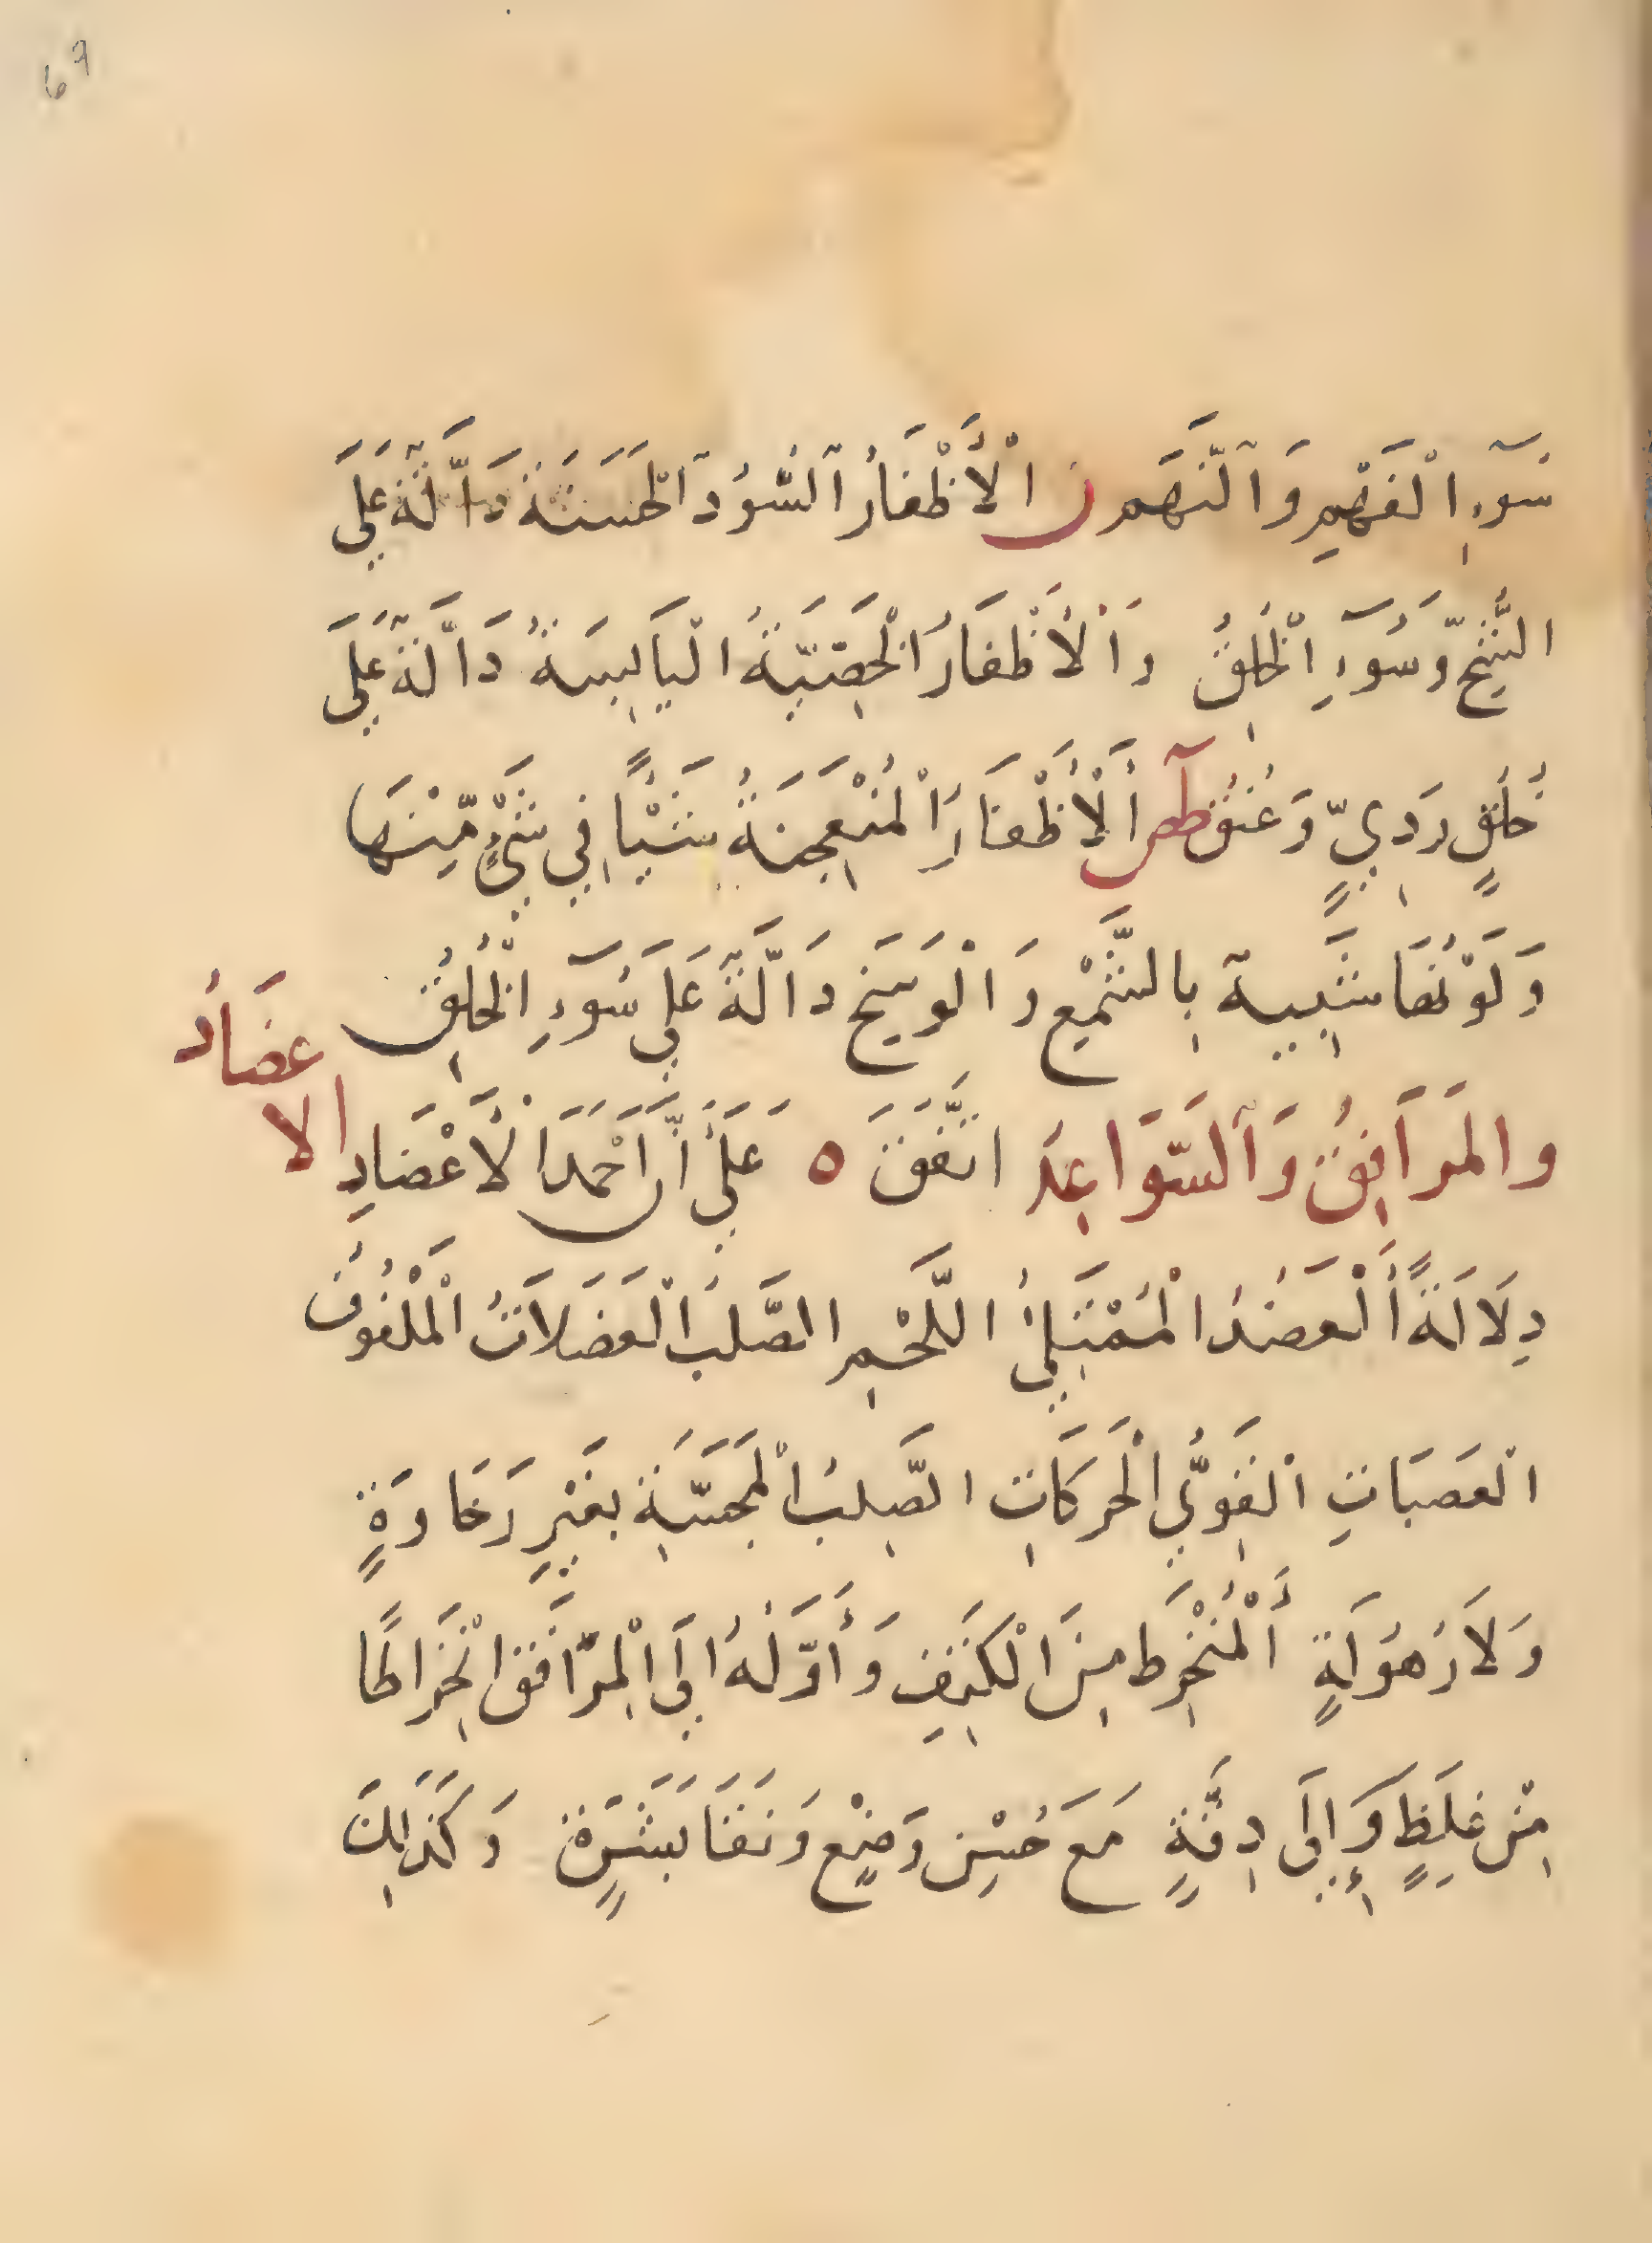 67
سُوٓءِ الْفَهْمِ وَالنَّهَم ن الْأَظْفَارُ السُّودُ الْخَشَنَةُ دَالَّةٌ عَلَى
الشُّحِّ وَسُوٓءِ الْخُلُقِ وَالْأَظْفَارُ الْحِصِّيَّةُ الْيَابِسَةُ دَالَّةٌ عَلَى
خُلُقٍ رَدِيٍّ وَعُنُوٍّ طص الْأَظْفَارُ الْمُنْعِجَمَةُ شَيْئًا فِي شَيْءٍ مِّنْهَا
وَلَوْنُهَا شَبِيهٌ بِالشَّمْعِ وَالْوَسِخِ دَالَّةٌ عَلَى سُوٓءِ الْخُلُقِ
الاعضَادُ
والمَرَافِقُ وَالسَّوَاعِدُ اتَّفَقَ ه عَلَى أَنَّ أَحْمَدَ الْأَعْضَادِ
دِلَالَةً أَلْعَضُدُ الْمُمْتَلِئُ اللَّحْمِ الصَّلْبُ الْعَضَلَاتُ الْمَلْفُوفُ
الْعَصَبَاتِ الْقَوِيُّ الْحَرَكَاتِ الصَّلِبُ الْمَجَسَّةِ بِغَيْرِ رَخَاوَةٍ
وَلَا رُهُولَةٍ أَلْمُنْخَرِطُ مِنَ الْكَتِفِ وَأَوَّلُهُ إِلَى الْمِرَّافَقِ انْخِرَاطًا
مِنْ غِلَظٍ وَإِلَى دِقَّةٍ مَعَ حُسْنِ وَضْعٍ وَنَقَا بَشَرَةٍ وَكَذَالِكَ